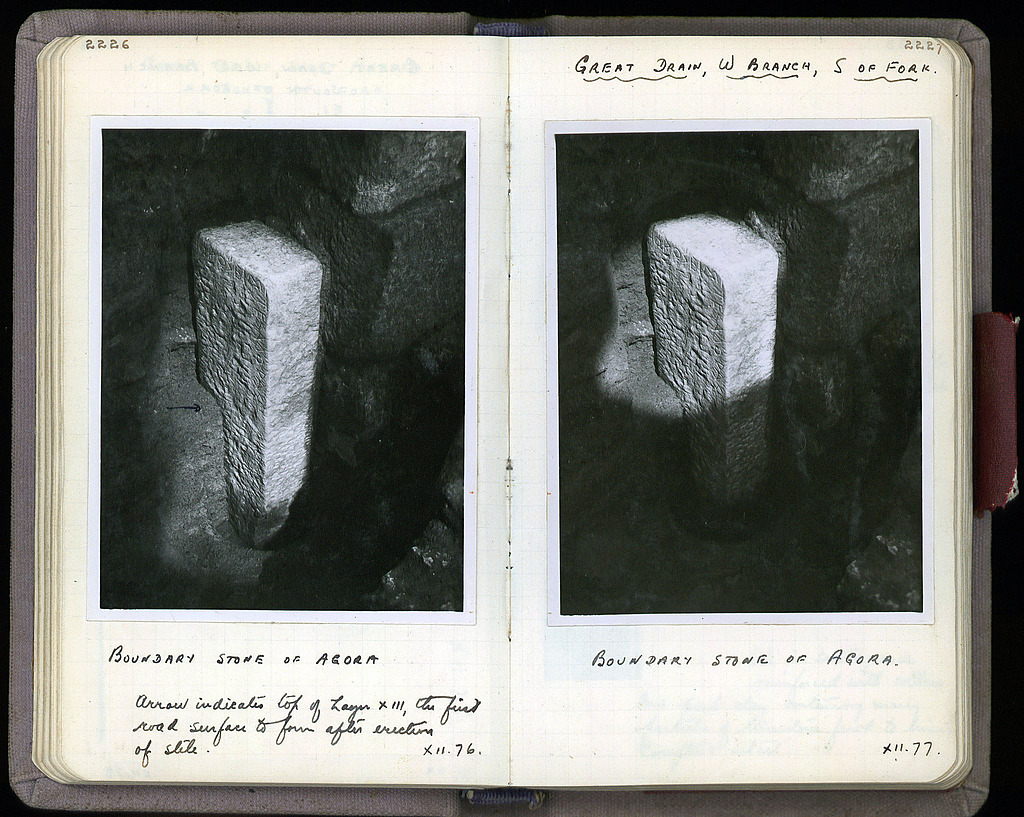 2226
BOUNDARY STONE OF AGORA
Arrow indicates top of Layer XIII, the first
road surface to form after erection
of stele.
XII.76.
2227
GREAT DRAIN, W BRANCH, S OF FORK.
BOUNDARY STONE OF AGORA.
XII.77.